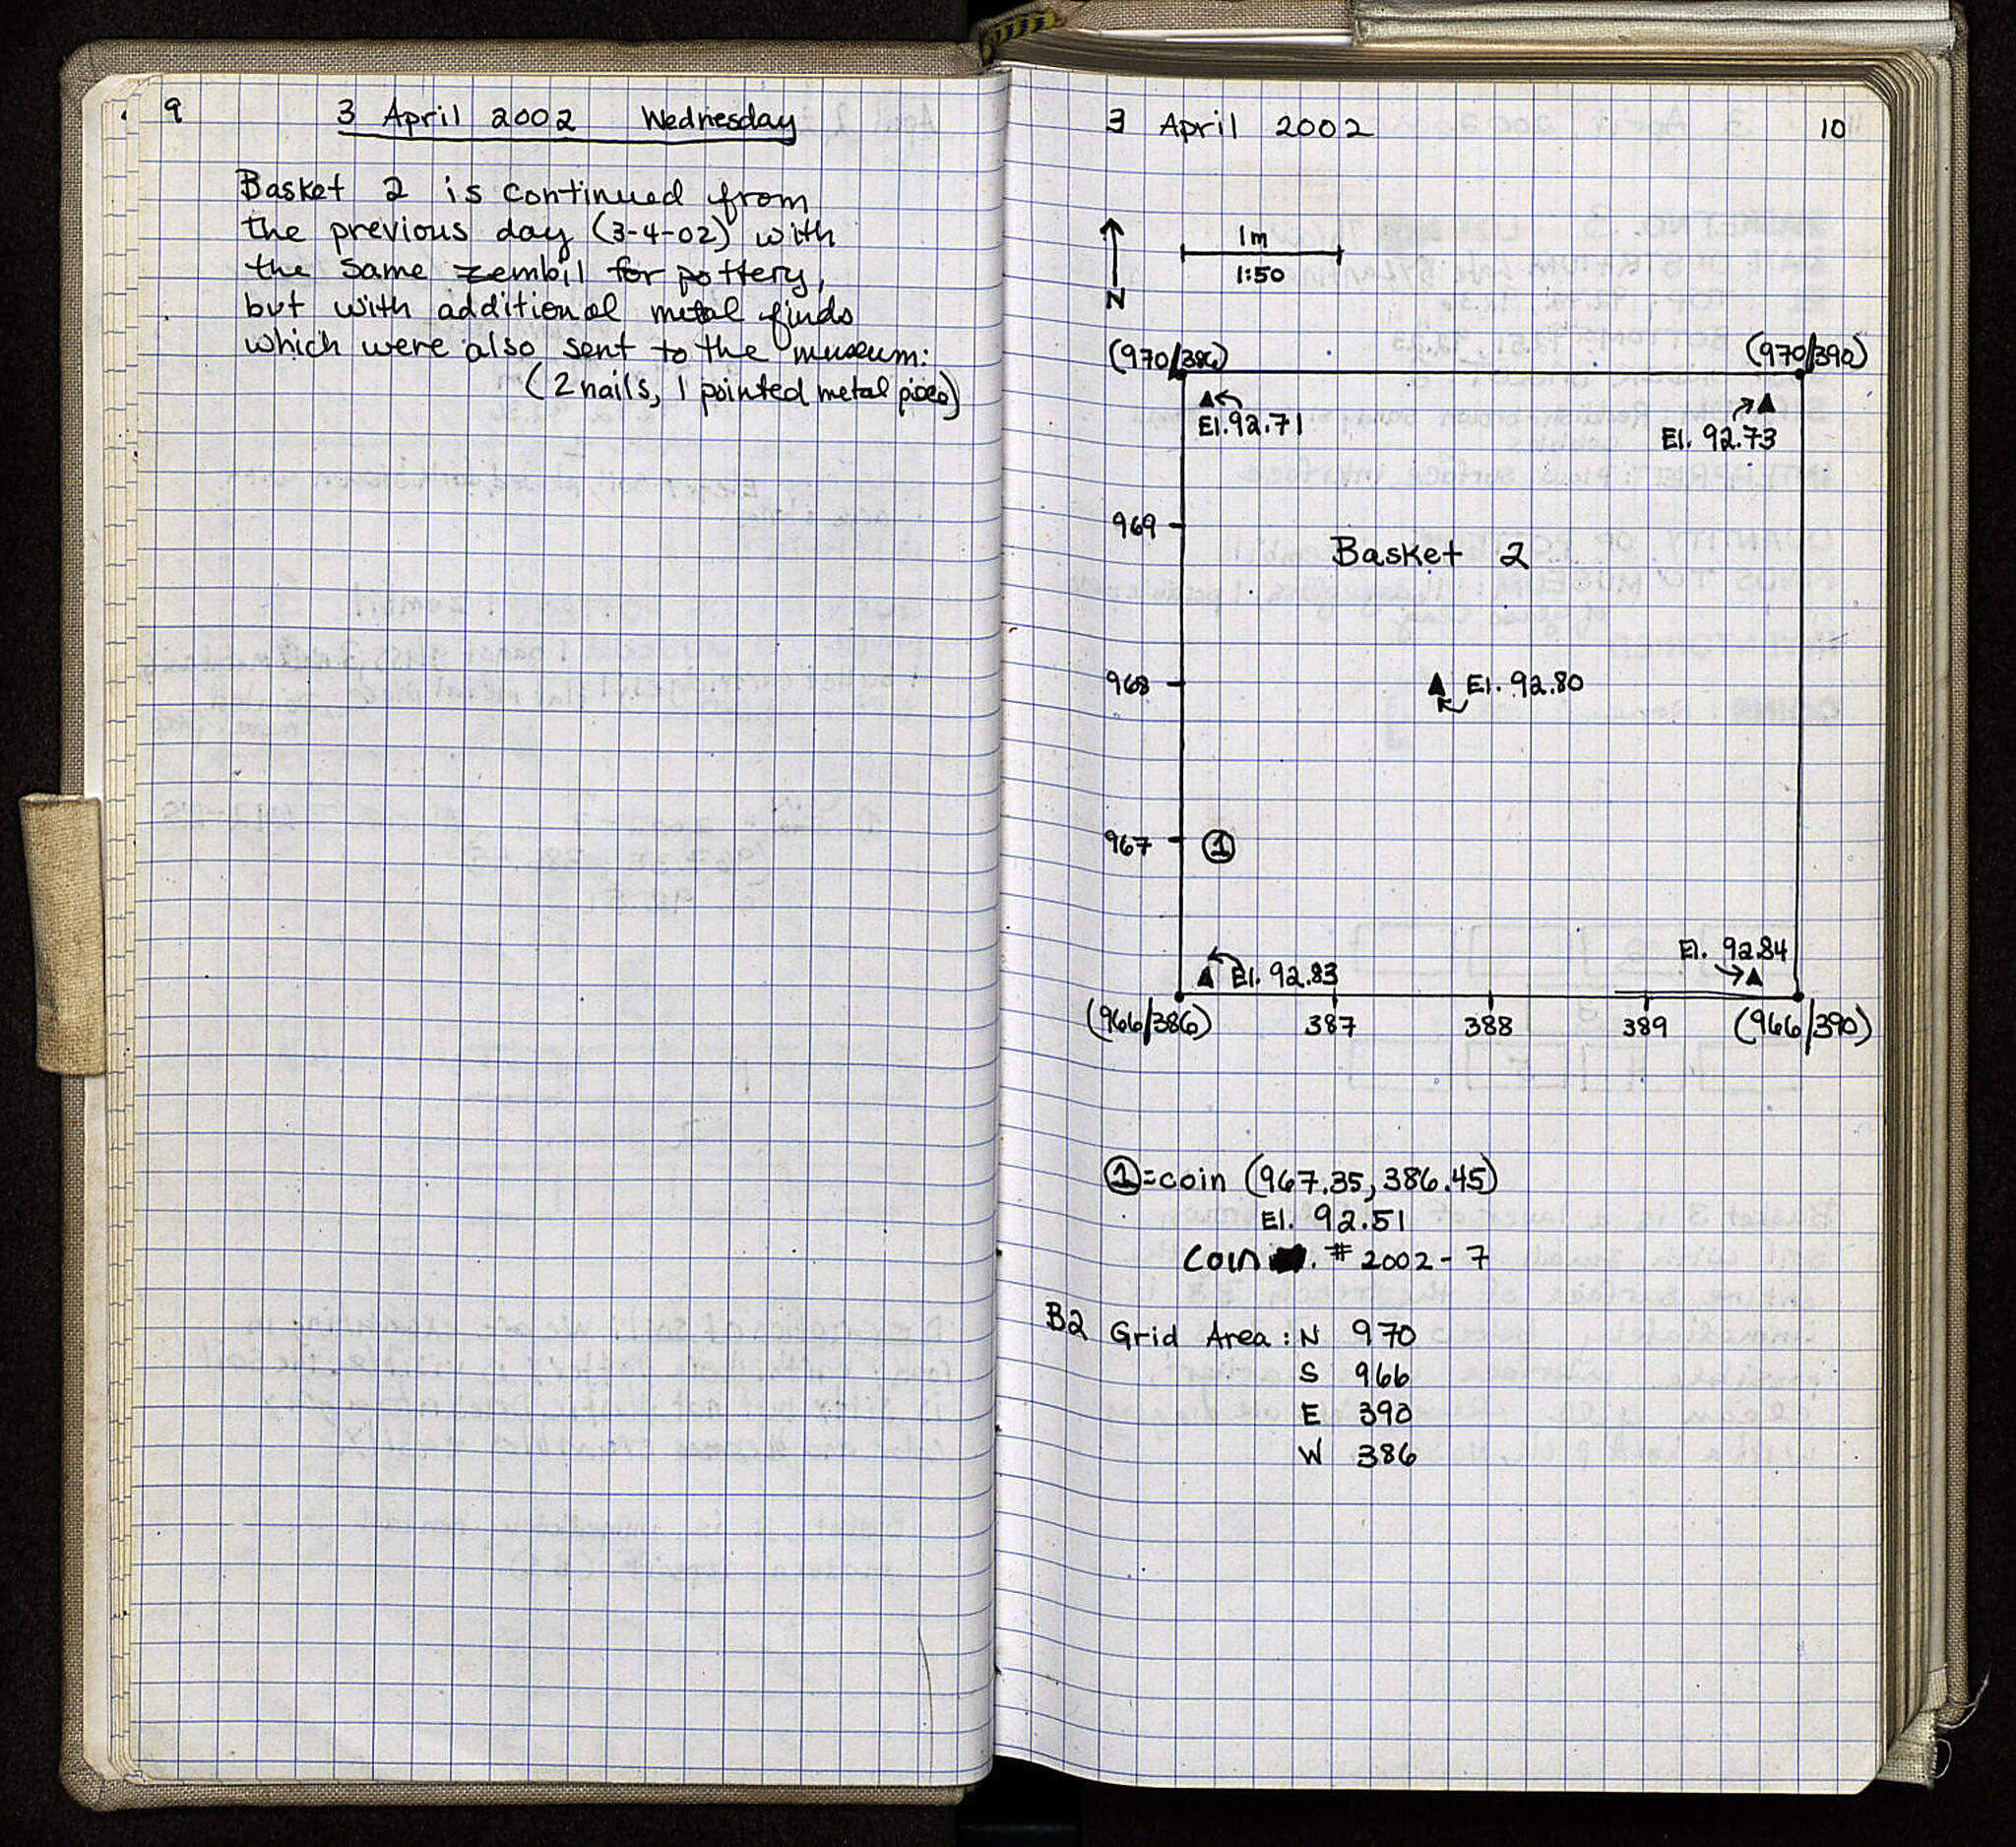 9 3 April 2002 Wednesday
Basket 2 is continued from
the previous day (3-4-02) with
the same zembil for pottery,
but with additional metal finds
which were also sent to the museum:
(2 nails, 1 pointed metal piece)
3 April 2002 10
1m
1:50
N
(970/386) (970/390)
El. 92.71
El. 92.73
969
Basket 2
968
El. 92.80
967 1
El. 92.84
El. 92.83
(966/386) 387 388 389 (966/390)
1 = coin (967.35, 386.45)
El. 92.51
Coin . # 2002-7
B2 Grid Area: N 970
S 966
E 390
W 386